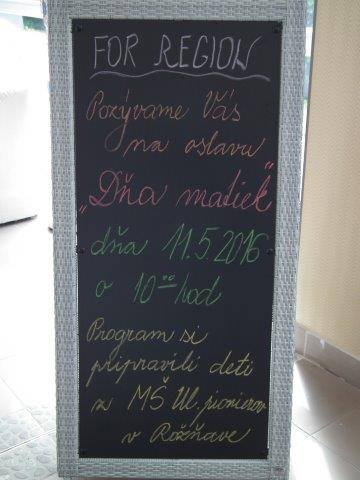 FOR REGION
Pozývame Vás
na oslavu
„Dňa matiek"
dňa 11.5.2016
o 10⁰⁰ hod
Program si
pripravili deti
z MŠ Ul. pionierov
v Rožňave